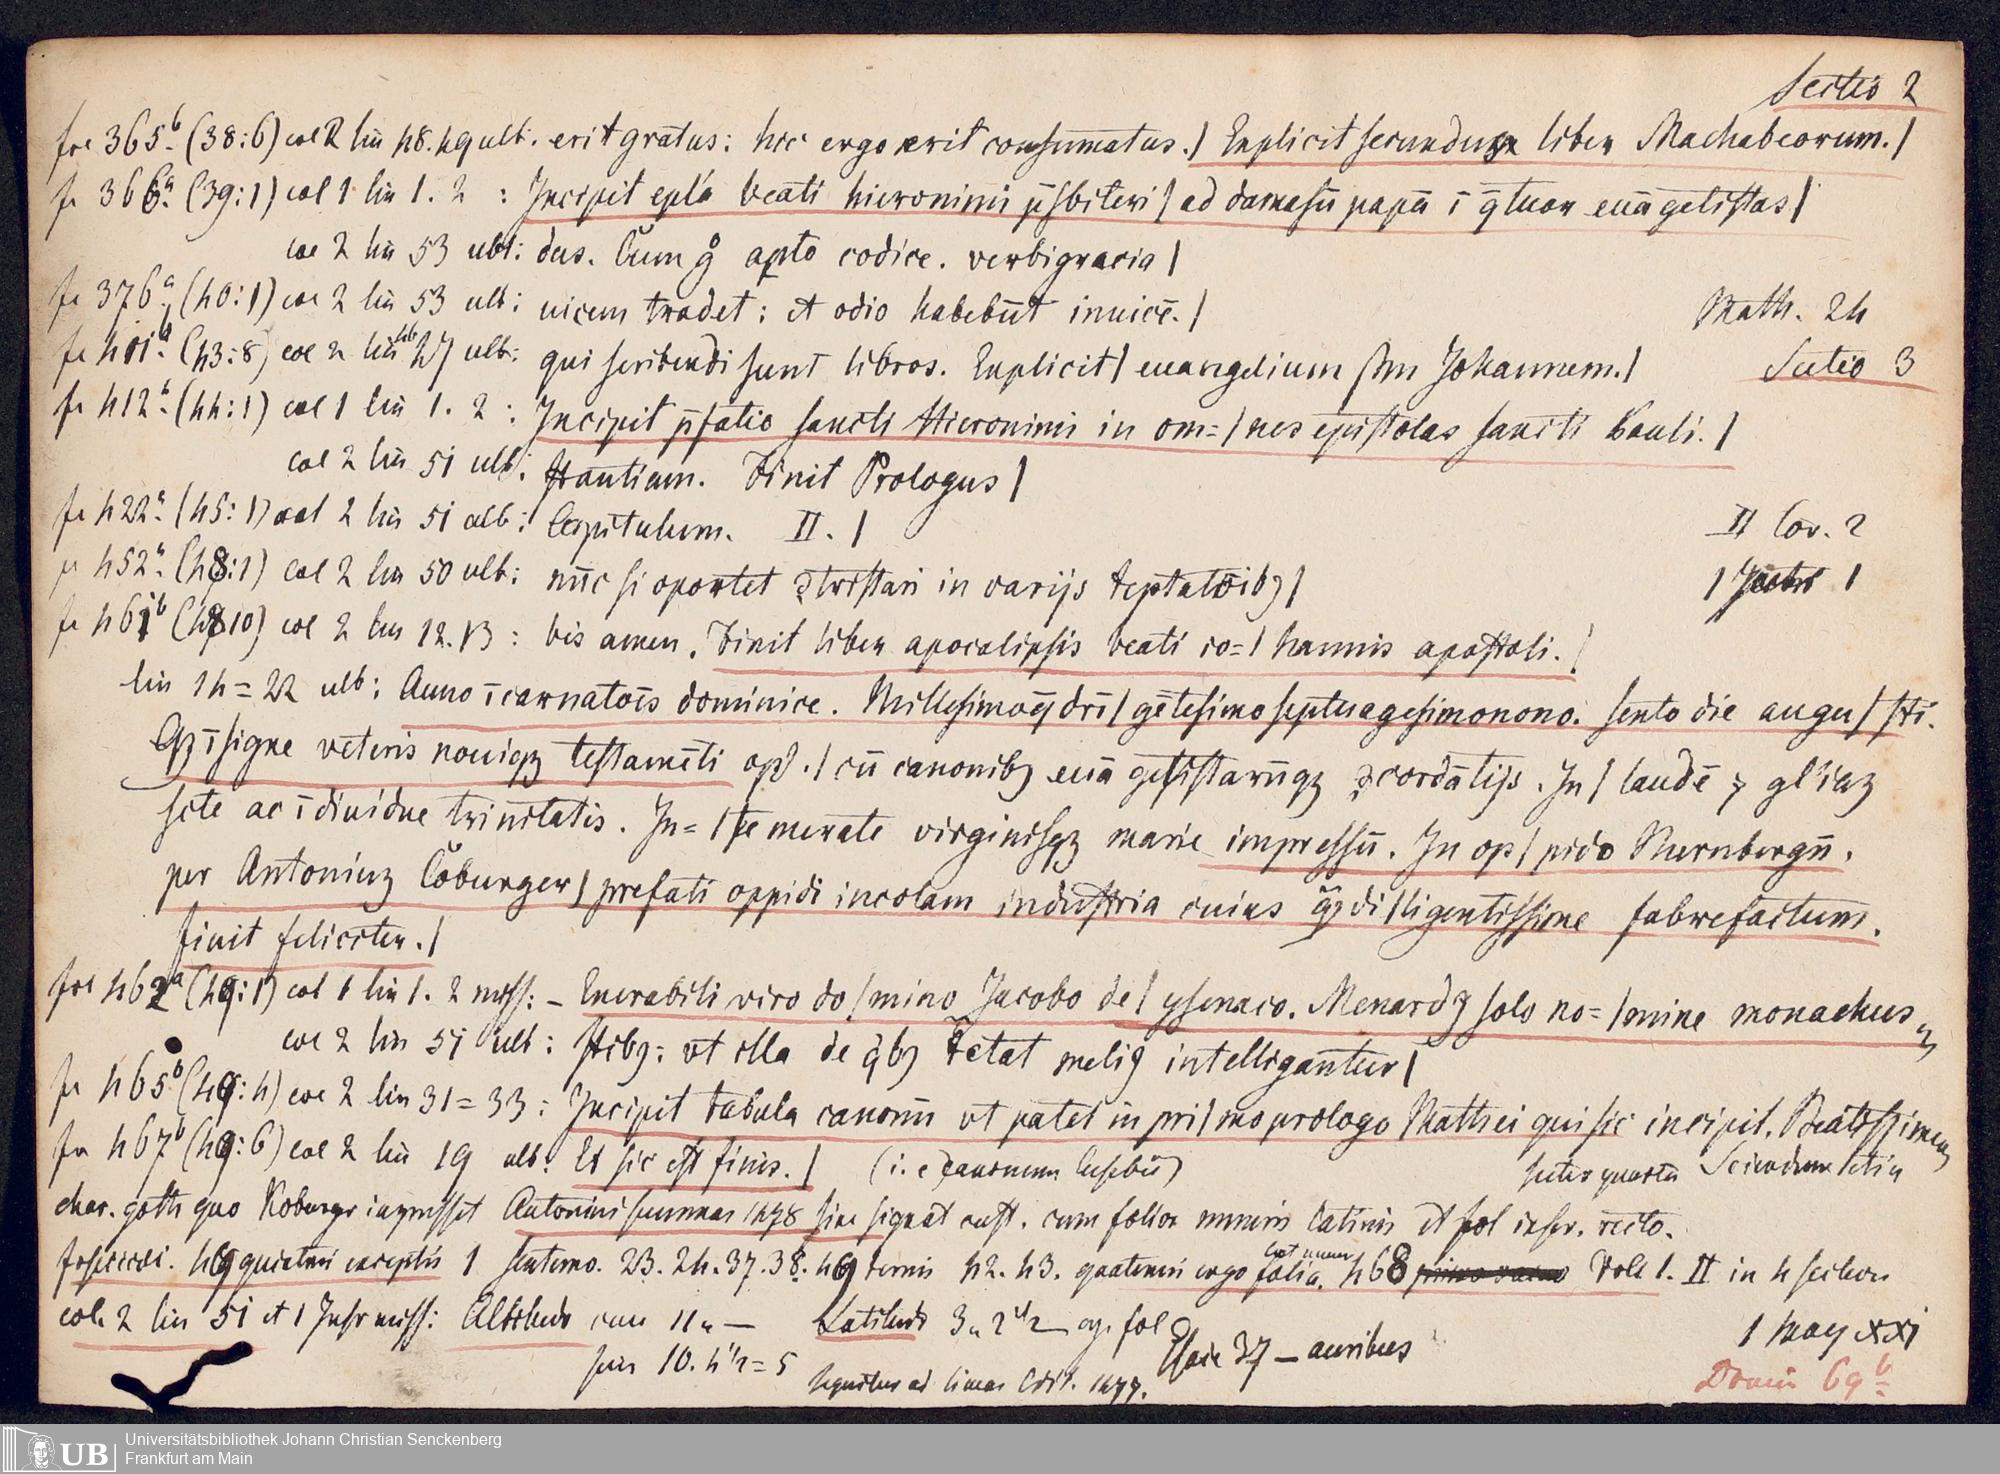 Sectio 2
fol 365b (38:6) col 2 lin 48. 49 ult: erit gratus: hic ergo erit consumatus./ Explicit secundus liber Machabeorum./
fo 366a (39:1) col 1 lin 1. 2 : Incipit epl'a beati hieronimi p̄sbiteri/ ad damasū papā ī q̄tuor euāgelistas/
col 2 lin 53 ult: dus. Cum apto codice. verbigracia/
fo 376a (40:1) col 2 lin 53 ult: uicem tradet: et odio habebūt inuicē./ Math. 24
fo 411b (43:8) col 2 lin 47 ult: qui scribendi sunt libros. Explicit/ euangelium Johannem./ Sectio 3
fo 412a (44:1) col 1 lin 1. 2 : Incipit p̄fatio sancti Hieronimi in om=/nes epistolas sancti Pauli./
col 2 lin 51 ult: stantiam. Finit Prologus/
fo 422a (45:1) col 2 lin 51 ult: Capitulum. II./ II Cor. 2
fo 452a (48:1) col 2 lin 50 ult: nūc si oportet ꝯtristari in varijs / 1 1
fo 461b (4810) col 2 lin 12.13 : bis amen. Finit liber apocalipsis beati io=/hannis apostoli./
lin 14=22 ult: Anno īcarnatōis dominice. Millesimoq̄drī/gētesimoseptuagesimonono. sexto die augu/sti.
Qꝫ īsigne veteris nouiqꝫ testamēti opꝰ./ cū canonibꝫ euāgelistarūqꝫ ꝯcordātijs. In/ laudē ⁊ gl'iaꝫ
scte ac īdiuidue trinitatis. In=/temerate virginisqꝫ marie impressū. In op/pido Nurnbergn̄.
per Antoniuꝫ Coburger/ prefati oppidi incolam industria cuius qꝫdi/ligentissime fabrefactum.
finit feliciter./
fol 462a (49:1) col 1 lin 1. 2 miss: – Enerabili viro do/mino Jacobo de/ ysenaco. Menardꝰ solo no=/mine monachus
col 2 lin 51 ult: stibꝫ: vt illa de q̄bꝫ meliꝰ intelligantur/
fo 465b (49:4) col 2 lin 31=33 : Incipit tabula canonū vt patet in pri/mo prologo Mathei qui sic incipit. Beatissimo
fo 467b (49:6) col 2 lin 19 ult: Et sic est finis./ (i. e canonum Eusebii)
char. goth quo Koburger impressit Antonini summas 1478 sine signat cust. cum folior numeris latinis et fol inscr. recto.
49 exceptis 1 sexterno. 23. 24. 37. 38. 49 ternis 42. 43. quaternis ergo folia. 468 Voll 1. II in 4
col. 2 lin 51 et 1 miss: Altitudo cum 11 – Latitudo 3 fol
sine 10. = 5 ad lineas Edit. 1477. Esaie 37 – auribus 1 May XXI
69
Universitätsbibliothek Johann Christian Senckenberg
UB Frankfurt am Main